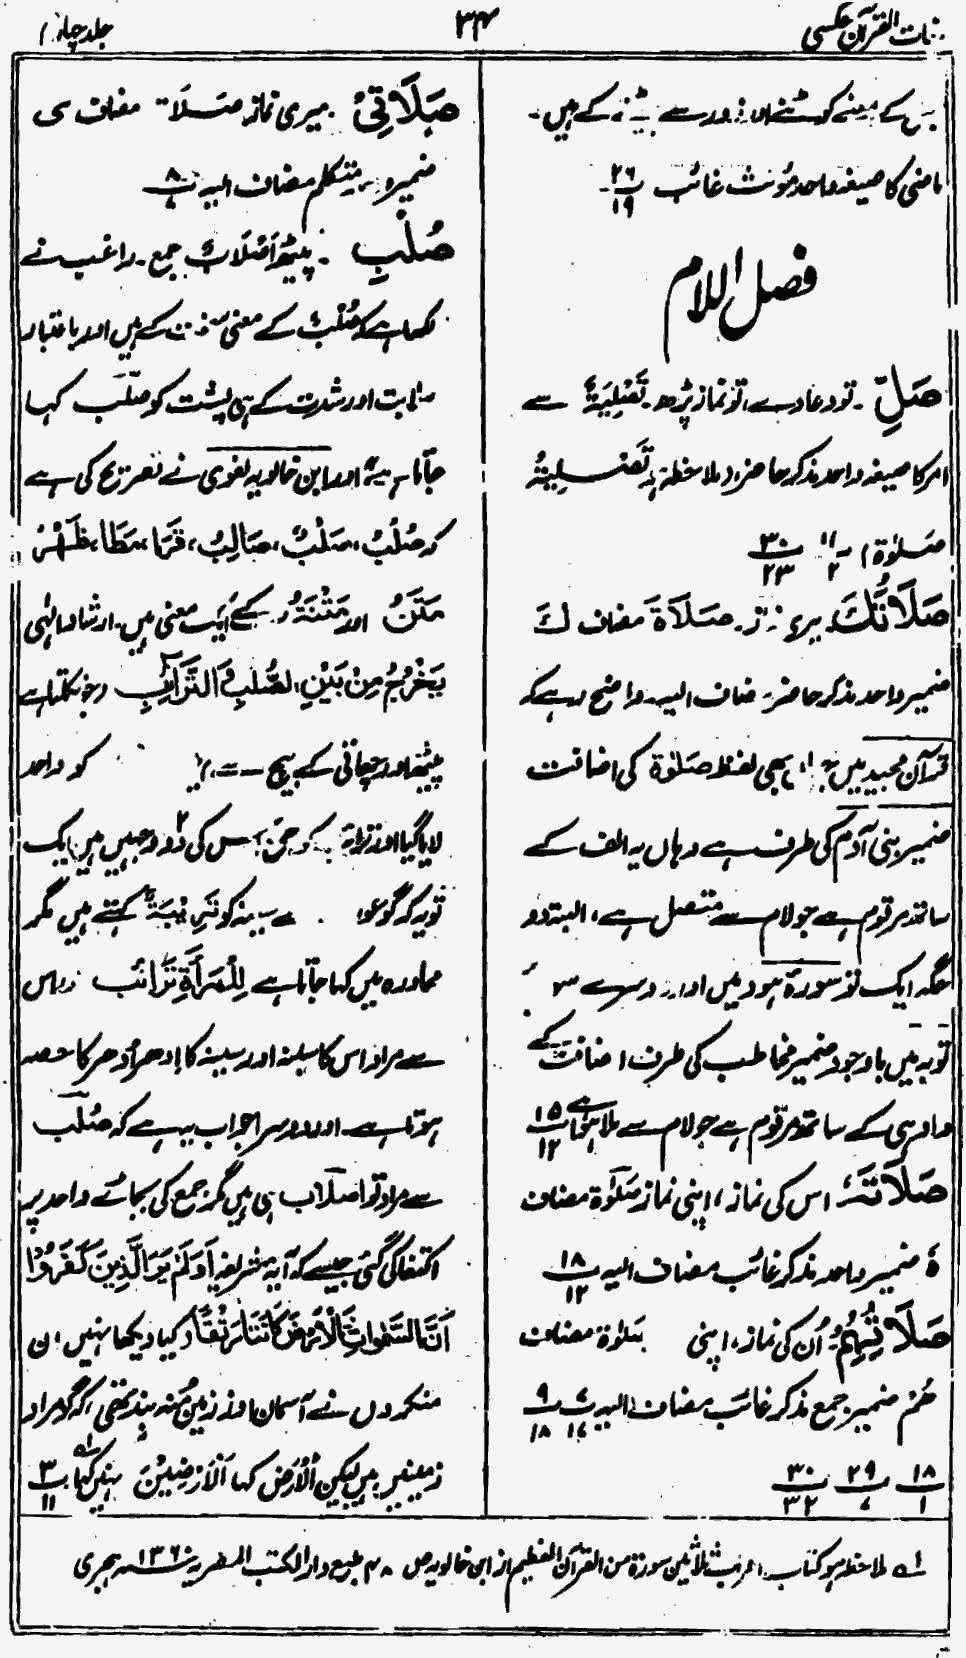 لغات القرآن عکسی
۳۴
جلد چہارم
جس کے معنے کوٹنے اور زور سے پیٹنے کے ہیں۔
ماضی کا صیغہ واحد مؤنث غائب ۲۶/۱۹
فصل اللام
صَلِّ ۔ تو دعا دے، تو نماز پڑھ۔ تَصْلِیَۃٌ سے
امر کا صیغہ واحد مذکر حاضر (ملاحظہ ہو تَصْلِیَۃُ
صَلٰوۃ) ۱۱/۲ ۳۰/۲۳
صَلَاتُكَ تیری نماز۔ صَلَاۃَ مضاف كَ
ضمیر واحد مذکر حاضر مضاف الیہ۔ واضح رہے کہ
قرآن مجید میں جہاں بھی لفظ صَلٰوۃ کی اضافت
ضمیر بنی آدم کی طرف ہے وہاں یہ الف کے
ساتھ مرقوم ہے جو لام سے متصل ہے، البتہ دو
جگہ ایک تو سورۃ ہود میں اور دوسرے سورۃ
توبہ میں باوجود ضمیر مخاطب کی طرف اضافت کے
واو ہی کے ساتھ مرقوم ہے جو لام سے ملا ہوا ہے ۱۵/۱۲
صَلَاتَہٗ اس کی نماز، اپنی نماز صَلٰوۃ مضاف
ہٗ ضمیر واحد مذکر غائب مضاف الیہ ۱۸/۱۲
صَلَاتِہِمْ اُن کی نماز، اپنی صلوٰۃ مضاف
ھُمْ ضمیر جمع مذکر غائب مضاف الیہ ۷/۱۷ ۹/۱۸
۱۸/۱ ۲۹/۷ ۳۰/۳۲
صَلَاتِیْ میری نماز صَلَات مضاف ی
ضمیر واحد متکلم مضاف الیہ ۸/۷
صُلْبِ ۔ پیٹھ اَصْلَابٌ جمع۔ راغب نے
لکھا ہے کہ صُلْبٌ کے معنی سخت کے ہیں اور باعتبار
صلابت اور شدت کے ہی پشت کو صلْب کہا
جاتا ہے اور ابن خالویہ لغوی نے تصریح کی ہے
کہ صُلْبٌ، صَلَبٌ، صَالِبٌ، قَرَا، مَطَا، ظَہْرٌ
مَتْنٌ اور مَتْنَۃٌ کے ایک معنی ہیں۔ ارشاد الٰہی
یَخْرُجُ مِنْ بَیْنِ الصُّلْبِ وَالتَّرَائِبِ (جو نکلتا ہے
پیٹھ اور چھاتی کے بیچ سے) میں کو واحد
لایا گیا اور ترائب کو جمع، اس کی دو وجہیں ہیں ایک
تو یہ کہ گو عورت کے سینہ کو تَرِیْبَۃٌ کہتے ہیں مگر
محاورہ میں کہا جاتا ہے لِلْمَرْأَۃِ تَرَائب اس
سے مراد اس کا سینہ اور سینہ کا اِدھر اُدھر کا حصہ
ہوتا ہے۔ اور دوسرا جواب یہ ہے کہ صُلْب
سے مراد تو اصلاب ہی ہیں مگر جمع کی بجائے واحد پر
اکتفا کی گئی جیسے کہ آیۂ شریفہ اَوَلَمْ یَرَ الَّذِیْنَ کَفَرُوْا
اَنَّ السَّمٰوَاتِ وَالْاَرْضَ کَانَتَا رَتْقًا (کیا دیکھا نہیں ان
منکروں نے آسمان اور زمین منہ بند تھی) کہ گو مراد
زمینیں ہیں لیکن اَلْاَرْضَ کہا اَلْاَرْضِیْنَ نہیں کہا ۳۰/۱۱
لہ ملاحظہ ہو کتاب اعراب ثلاثین سورۃ من القرآن العظیم از ابن خالویہ ص ۴۸ طبع دار الکتب المصریہ ۱۳۶۰ ہجری